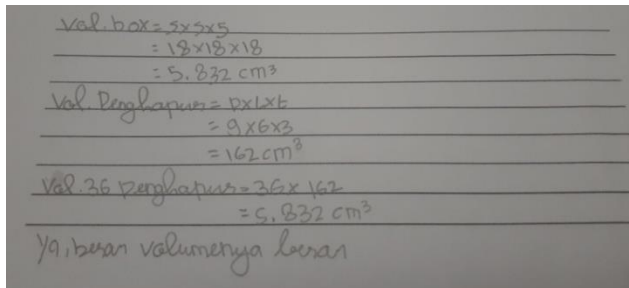 Vol. box = s x s x s
= 18 x 18 x 18
= 5.832 cm³
Vol. Penghapus = p x l x t
= 9 x 6 x 3
= 162 cm³
Vol. 36 penghapus = 36 x 162
= 5.832 cm³
Ya, besar volumenya